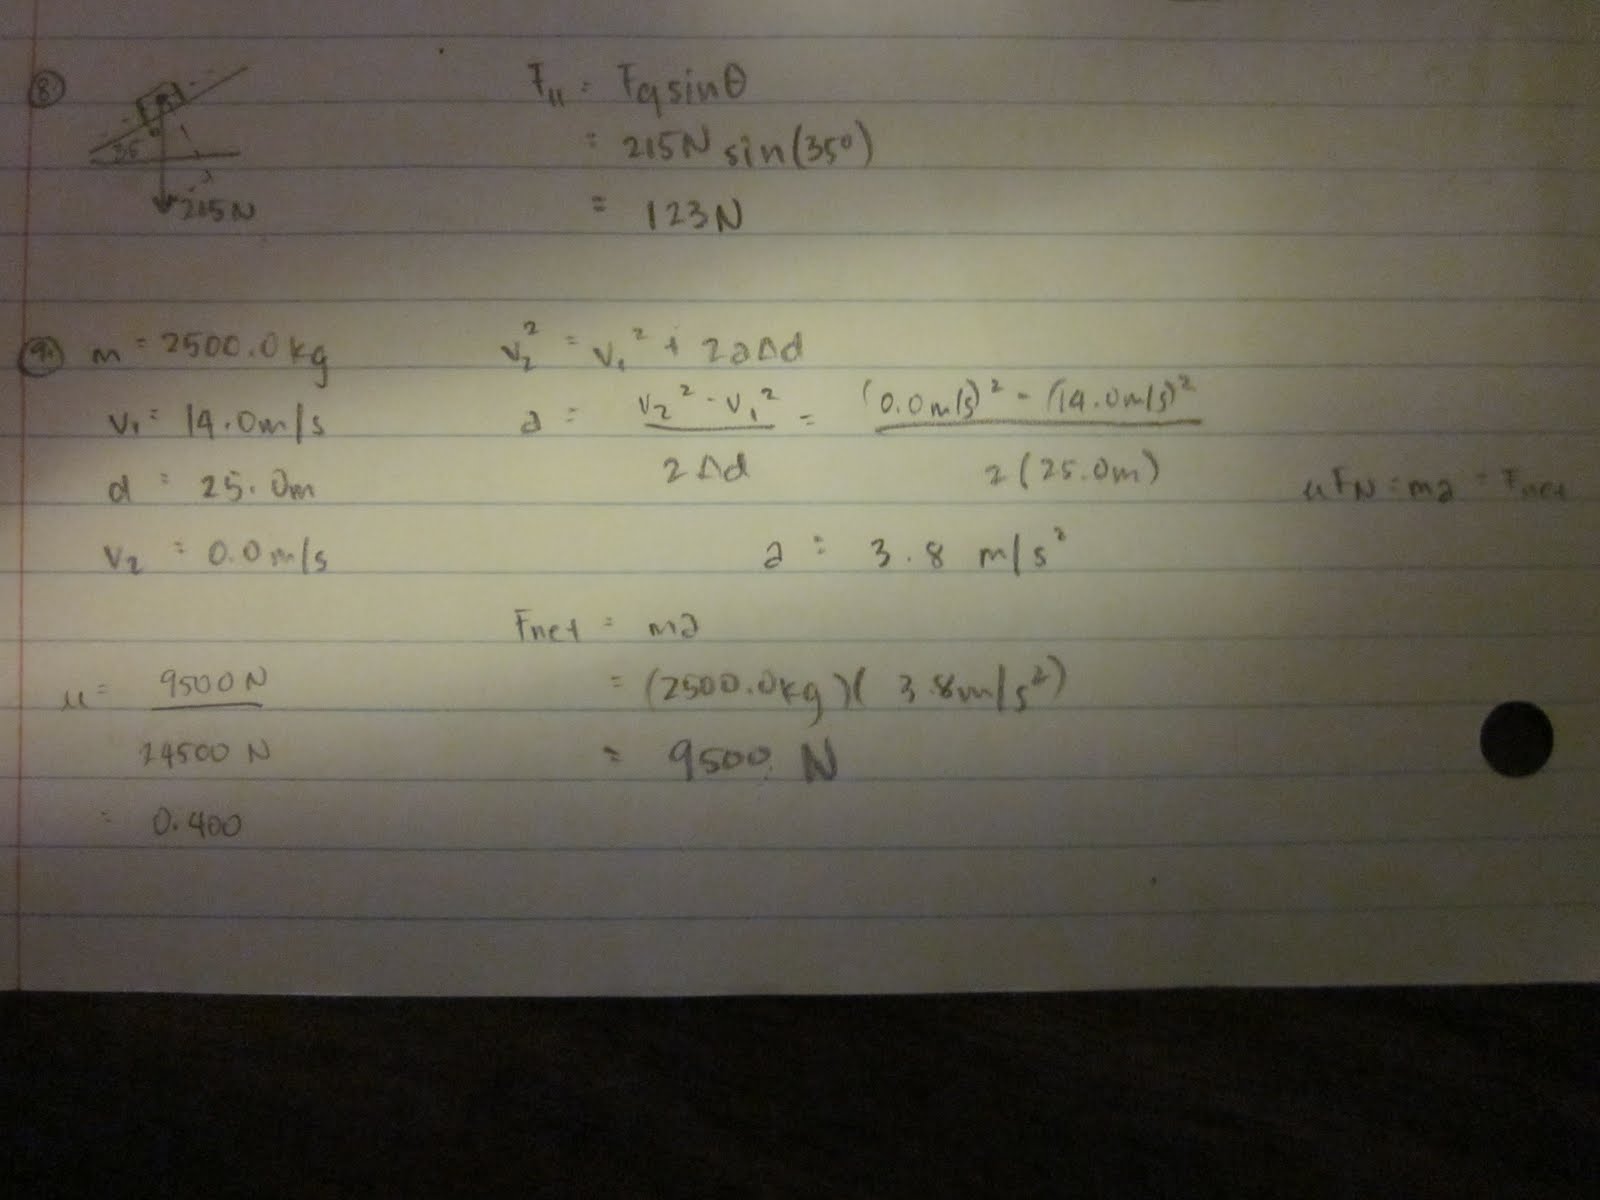 8.
35
215N
F₁₁ = Fg sinθ
= 215N sin(35°)
= 123N
9. m = 2500.0kg
v₁ = 14.0m/s
d = 25.0m
v₂ = 0.0m/s
v₂² = v₁² + 2aΔd
a = (v₂² - v₁²) / 2Δd = ((0.0m/s)² - (14.0m/s)²) / 2(25.0m)
μFN = ma = Fnet
a = 3.8 m/s²
Fnet = ma
= (2500.0kg)(3.8m/s²)
= 9500 N
μ = 9500N / 24500 N
= 0.400